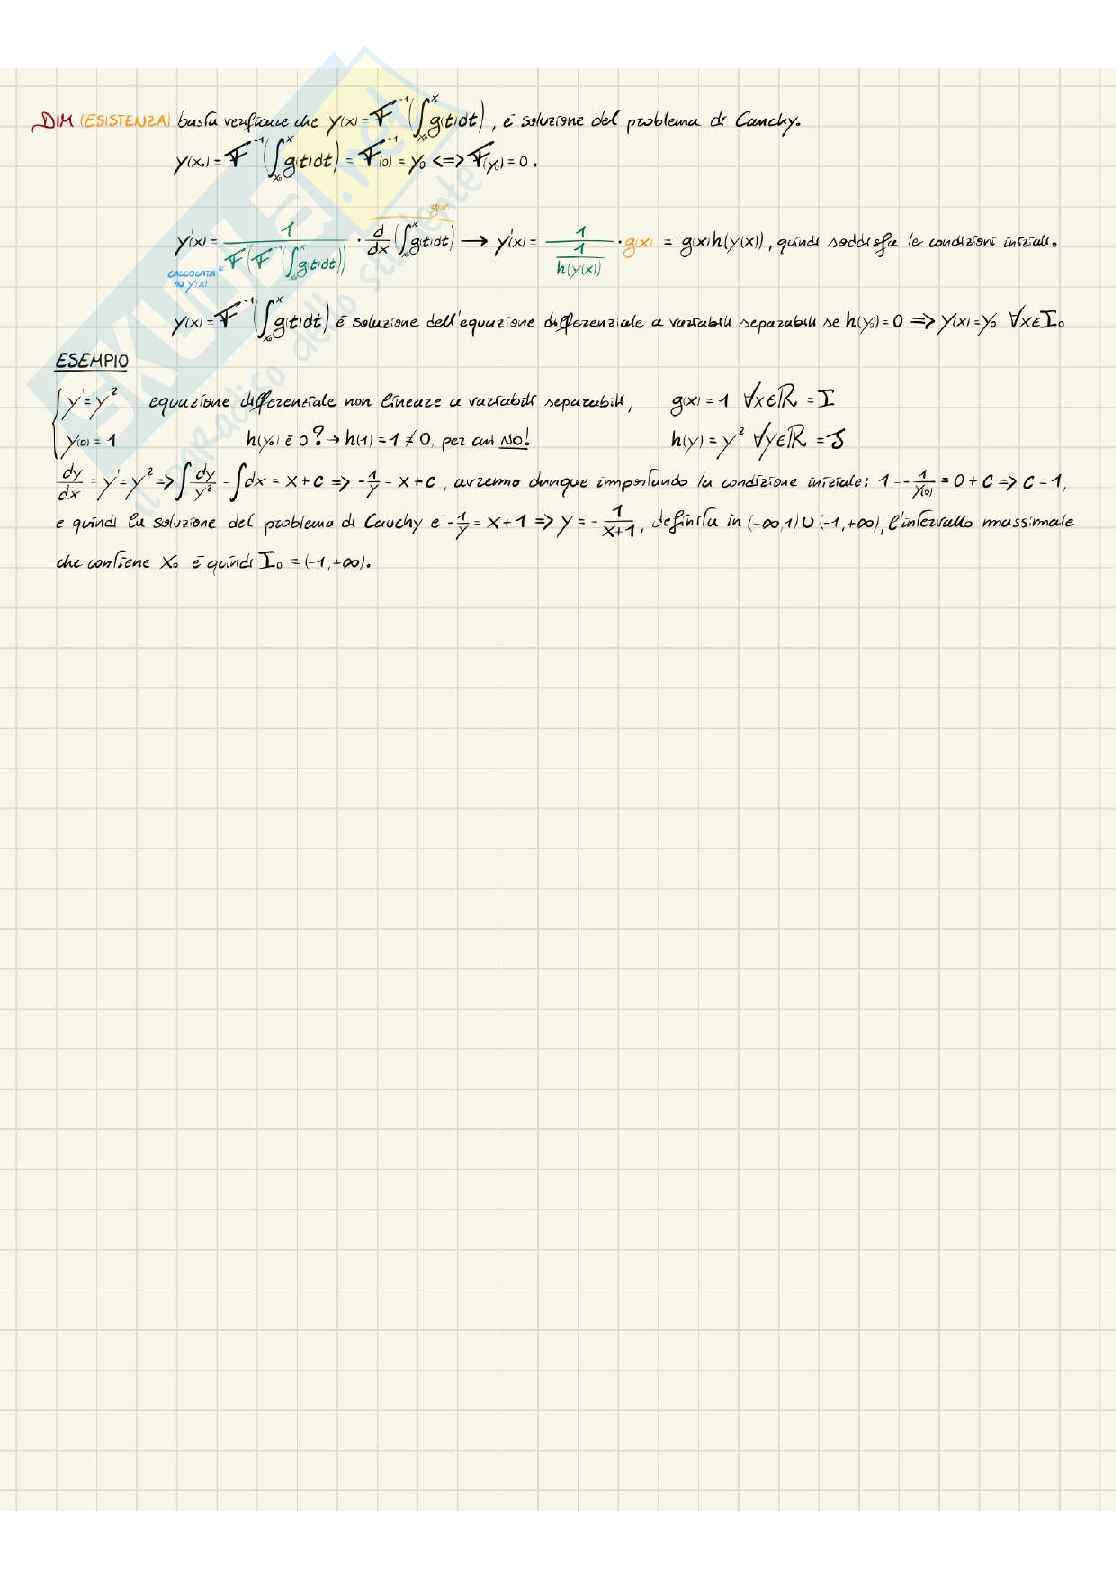 DIM (ESISTENZA) basta verificare che y(x) = F⁻¹(∫ₓ₀ˣ g(t)dt), è soluzione del problema di Cauchy.
y(x₀) = F⁻¹(∫ₓ₀ˣ g(t)dt) = F⁻¹(0) = y₀ <=> F(y₀) = 0.
y'(x) = 1 / F(F⁻¹(∫ₓ₀ˣ g(t)dt)) · d/dx (∫ₓ₀ˣ g(t)dt) → y'(x) = 1 / (1/h(y(x))) · g(x) = g(x)h(y(x)), quindi soddisfa le condizioni iniziali.
CALCOLATA IN y(x)
y(x) = F⁻¹(∫ₓ₀ˣ g(t)dt) è soluzione dell'equazione differenziale a variabili separabili se h(y₀) = 0 => y(x) = y₀ ∀x∈I₀
ESEMPIO
{ y' = y² equazione differenziale non lineare a variabili separabili, g(x) = 1 ∀x∈ℝ = I
y(0) = 1 h(y₀) è 0? → h(1) = 1 ≠ 0, per cui NO! h(y) = y² ∀y∈ℝ = J
dy/dx = y' = y² => ∫ dy/y² = ∫dx = x + c => -1/y = x + c, avremo dunque impostando la condizione iniziale: 1 = -1/y(0) = 0 + c => c = 1,
e quindi la soluzione del problema di Cauchy è -1/y = x + 1 => y = - 1/(x+1), definita in (-∞,1) ∪ (-1,+∞), l'intervallo massimale
che contiene x₀ è quindi I₀ = (-1,+∞).
SKUOLA.net
il paradiso dello studente